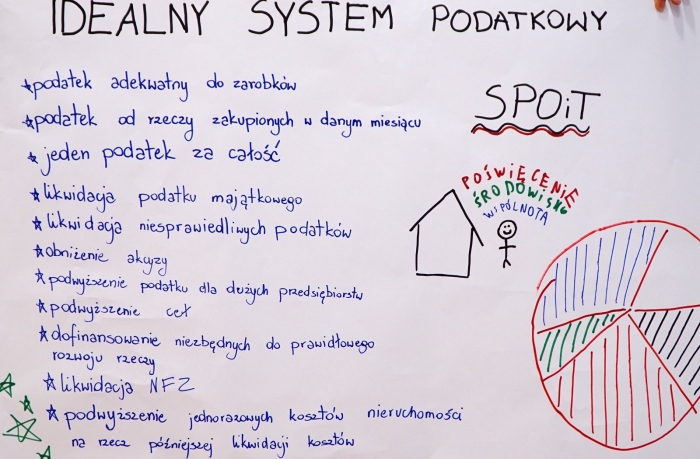 IDEALNY SYSTEM PODATKOWY
podatek adekwatny do zarobków
podatek od rzeczy zakupionych w danym miesiącu
jeden podatek za całość
likwidacja podatku majątkowego
likwidacja niesprawiedliwych podatków
obniżenie akcyzy
podwyższenie podatku dla dużych przedsiębiorstw
podwyższenie ceł
dofinansowanie niezbędnych do prawidłowego
rozwoju rzeczy
likwidacja NFZ
podwyższenie jednorazowych kosztów nieruchomości
na rzecz późniejszej likwidacji kosztów
SPOiT
POŚWIĘCENIE
ŚRODOWISKO
WSPÓLNOTA